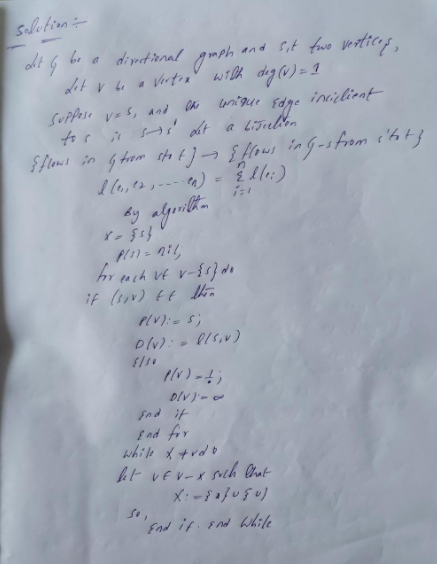 Solution:-
Let G be a directional graph and s,t two vertices,
Let v be a vertex with deg(v) = 1
Suppose v=s, and the unique edge incident
to s is s→s' Let a bijection
{flows in G from s to t} → {flows in G-s from s' to t}
l(e₁, e₂, ---- eₙ) = Σⁿᵢ₌₁ l(eᵢ)
By algorithm
x = {s}
P(s) = nil,
for each v∈ V-{s} do
if (s,v) ∈ E then
P(v) := s;
D(v) := l(s,v)
else
P(v) = ;
D(v) = ∞
End if
End for
while X ≠ v do
let v∈ V-X such that
X := {x} ∪ {v}
so,
End if. End While